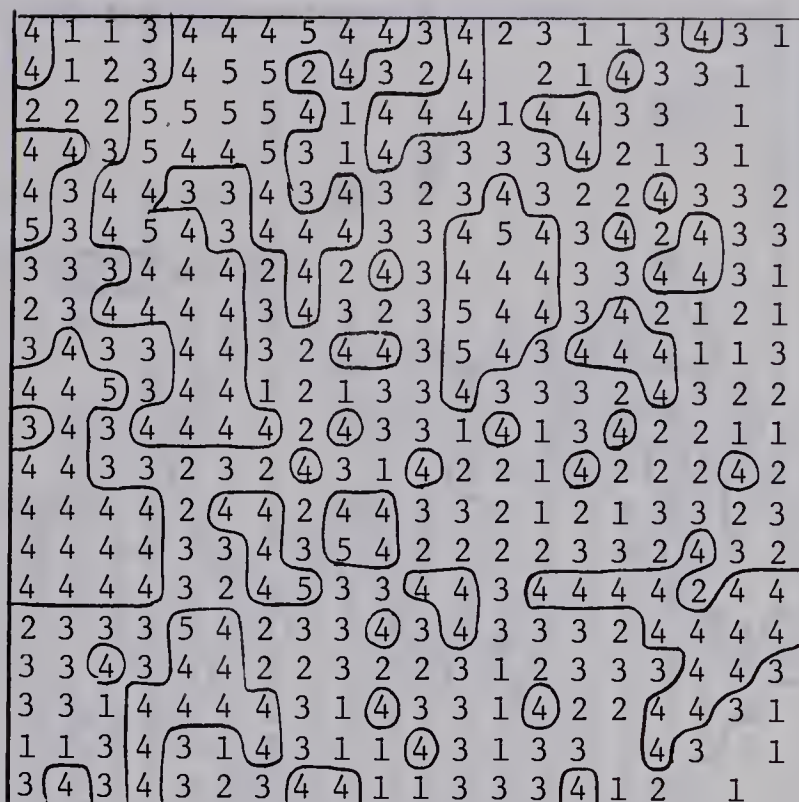 4 1 1 3 4 4 4 5 4 4 3 4 2 3 1 1 3 4 3 1
4 1 2 3 4 5 5 2 4 3 2 4 2 1 4 3 3 1
2 2 2 5 5 5 5 4 1 4 4 4 1 4 4 3 3 1
4 4 3 5 4 4 5 3 1 4 3 3 3 3 4 2 1 3 1
4 3 4 4 3 3 4 3 4 3 2 3 4 3 2 2 4 3 3 2
5 3 4 5 4 3 4 4 4 3 3 4 5 4 3 4 2 4 3 3
3 3 3 4 4 4 2 4 2 4 3 4 4 4 3 3 4 4 3 1
2 3 4 4 4 4 3 4 3 2 3 5 4 4 3 4 2 1 2 1
3 4 3 3 4 4 3 2 4 4 3 5 4 3 4 4 4 1 1 3
4 4 5 3 4 4 1 2 1 3 3 4 3 3 3 2 4 3 2 2
3 4 3 4 4 4 4 2 4 3 3 1 4 1 3 4 2 2 1 1
4 4 3 3 2 3 2 4 3 1 4 2 2 1 4 2 2 2 4 2
4 4 4 4 2 4 4 2 4 4 3 3 2 1 2 1 3 3 2 3
4 4 4 4 3 3 4 3 5 4 2 2 2 2 3 3 2 4 3 2
4 4 4 4 3 2 4 5 3 3 4 4 3 4 4 4 4 2 4 4
2 3 3 3 5 4 2 3 3 4 3 4 3 3 3 2 4 4 4 4
3 3 4 3 4 4 2 2 3 2 2 3 1 2 3 3 3 4 4 3
3 3 1 4 4 4 4 3 1 4 3 3 1 4 2 2 4 4 3 1
1 1 3 4 3 1 4 3 1 1 4 3 1 3 3 4 3 1
3 4 3 4 3 2 3 4 4 1 1 3 3 3 4 1 2 1